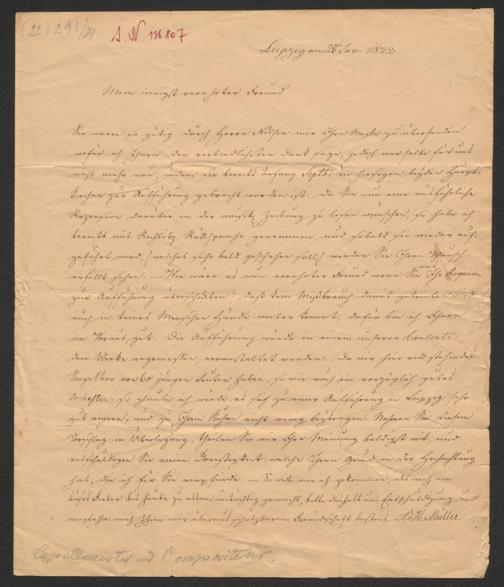 (21) 293/84
I. N. 136807
Leipzig am 25 Jan. 1822
Mein innigst verehrter Freund
Sie waren so gütig durch Herrn mir Ihre Messe zu übersenden
wofür ich Ihnen den verbindlichsten Dank sage, jedoch war selbe für uns
nicht mehr neu, indem sie bereits anfang Septbr. in hiesigen beyden Haupt-
kirchen zur Aufführung gebracht worden ist. Da Sie nun eine ausführliche
Rezension darüber in der musik. Zeitung zu lesen wünschen, so habe ich
bereits mit Rochlitz Rücksprache genommen, und sobald sie wieder auf-
geführt wird, (welches sehr bald geschehen soll) werden Sie Ihren Wunsch
erfüllt sehen. — Wie wäre es nun verehrter Freund wenn Sie Ihr Requiem
zur Aufführung überschickten? daß kein Mißbrauch damit
auch in keines Menschen Hände weiter kommt, dafür bin ich Ihnen
im Voraus gut. Die Aufführung würde in einem unserer Concerte,
dem Werke angemessen, veranstaltet werden. Da wir hier
Singchor von 60 jungen Leuten haben, so wie auch ein vorzüglich gutes
Orchester, so glaube ich würde es sich zu einer Aufführung in Leipzig sehr
gut eignen, und zu Ihrem Ruhme nicht wenig beytragen. Nehmen Sie diesen
Vorschlag in Überlegung, theilen Sie mir Ihre Meinung baldigst mit, und
entschuldigen Sie meine Dreistigkeit welche Ihren Grund in der Hochachtung
hat, die ich für Sie empfinde. —
bis heute zu allem untüchtig gemacht, bitte deshalb um Entschuldigung, und
empfehle mich Ihrer mir überaus schätzbaren Freundschaft bestens. Müller
Capellmeister und Compositeur.